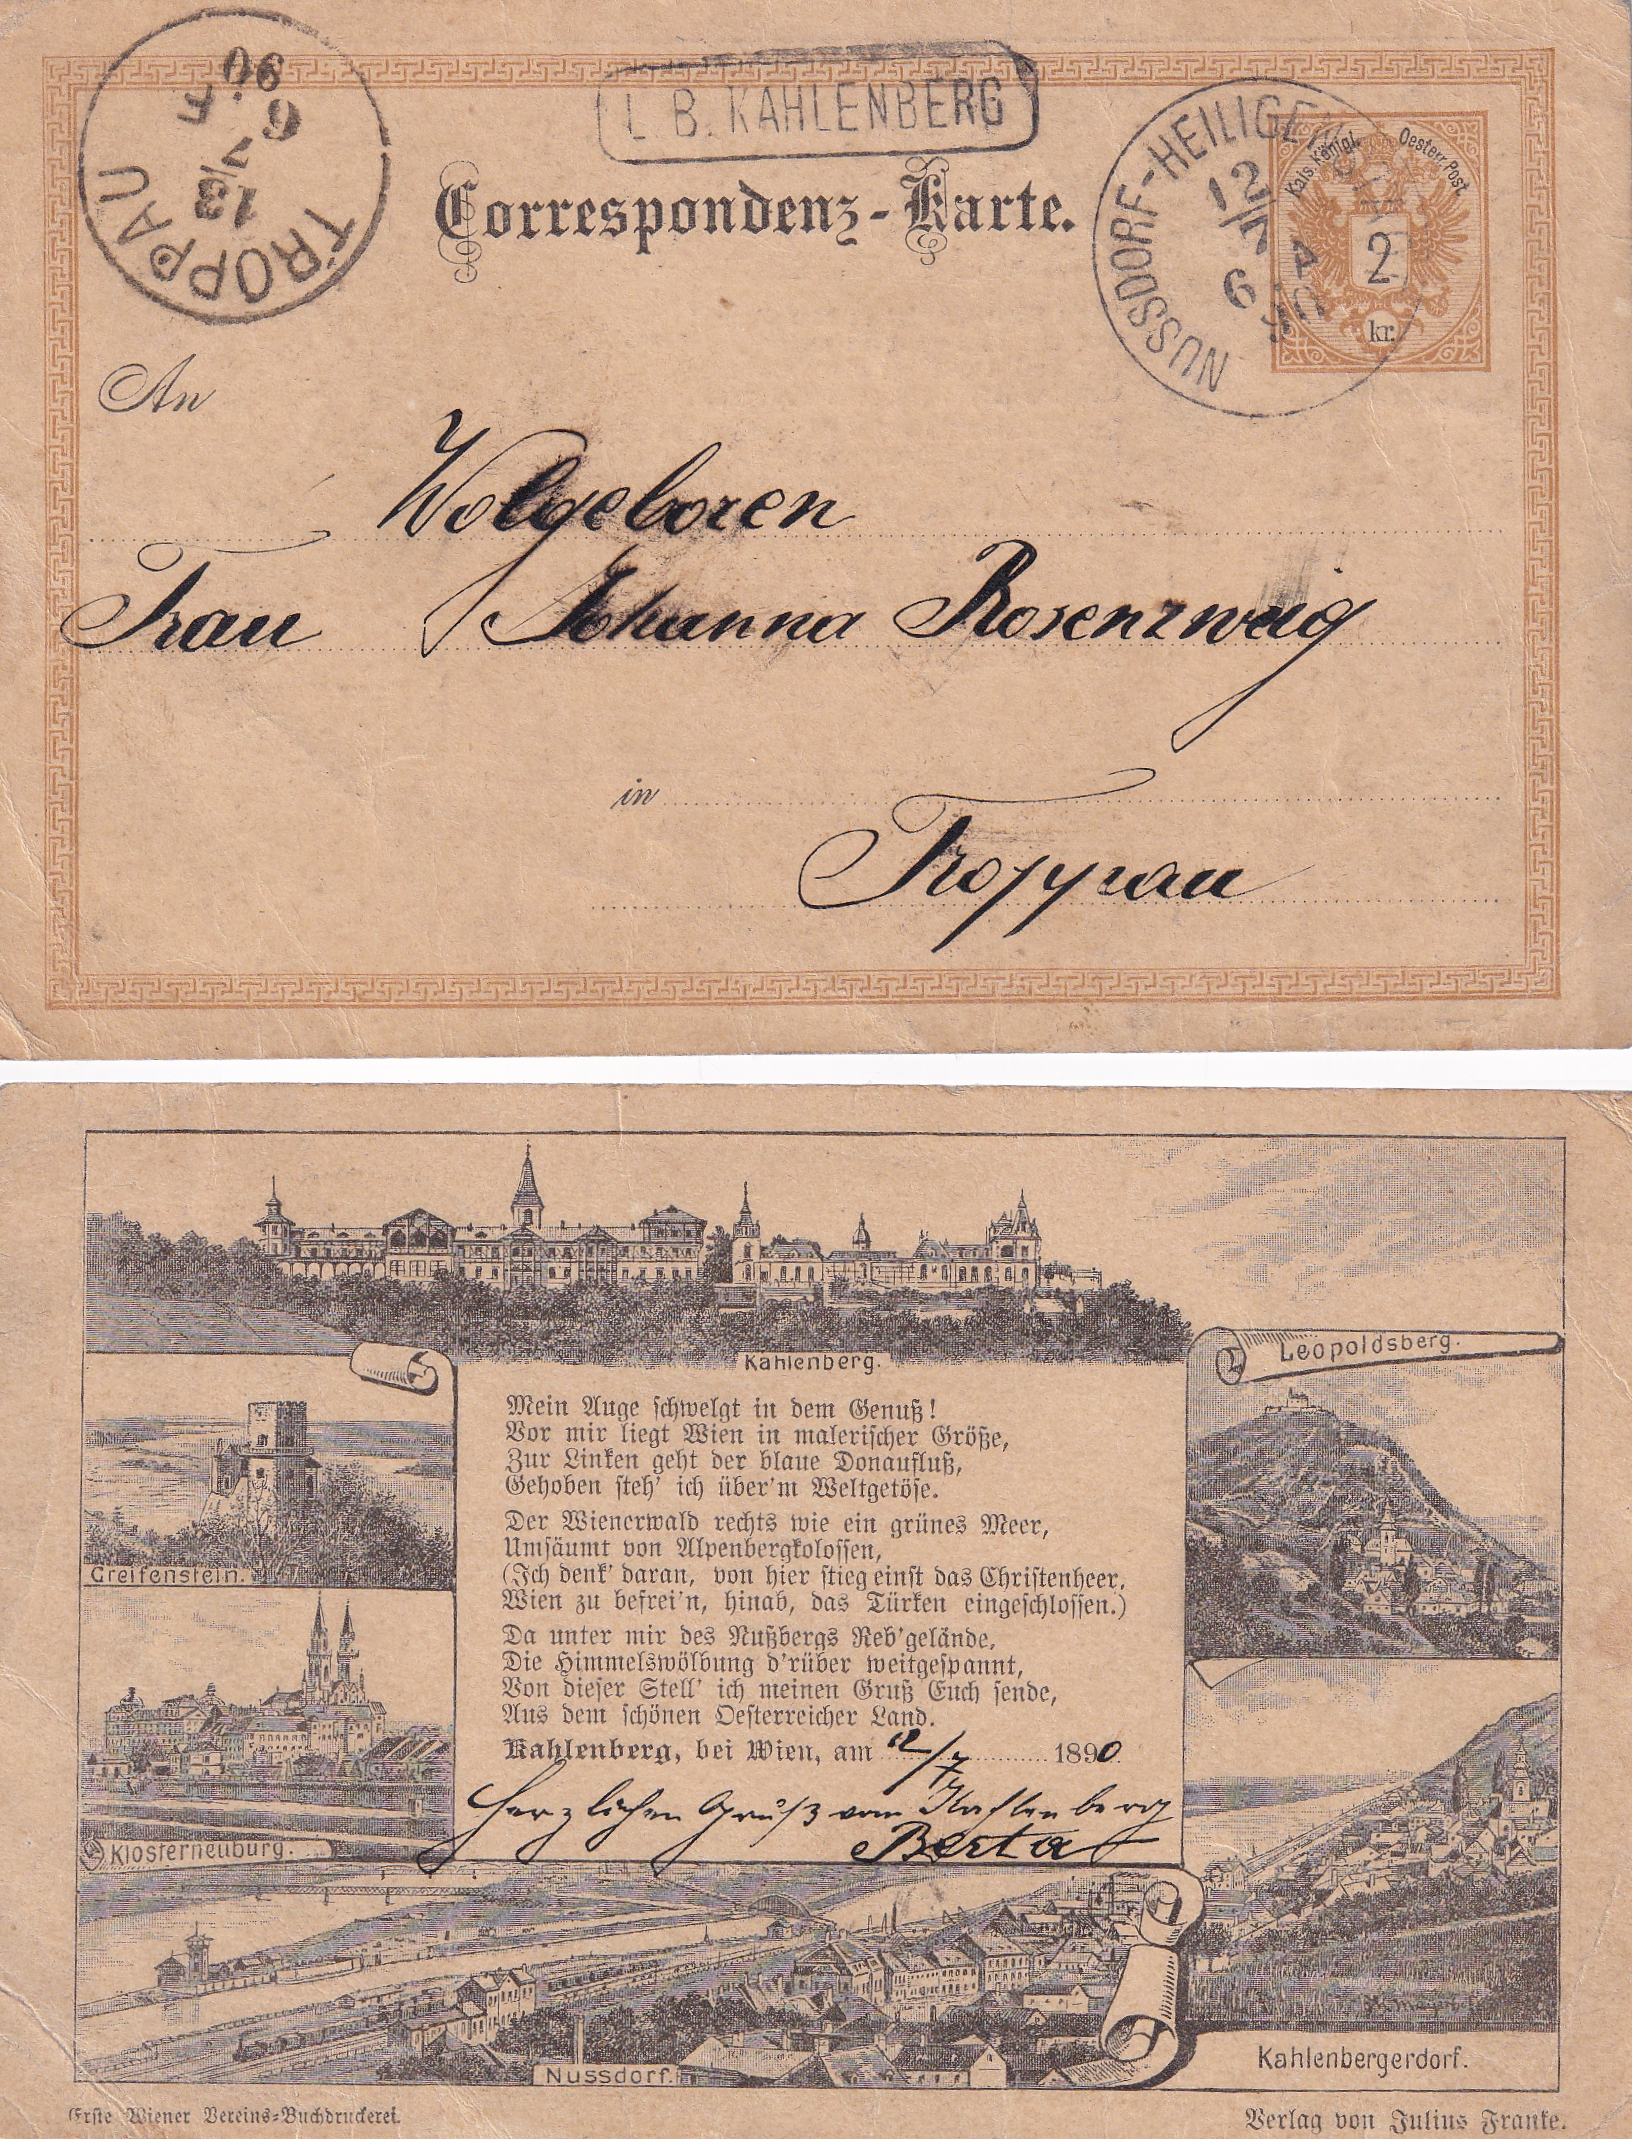 TROPPAU
13/7
6 F
90
L. B. KAHLENBERG
NUSSDORF-HEILIGEN
12/7
6
Kais. Königl. Oesterr. Post.
2
kr.
Correspondenz-Karte.
An
Wolgeboren
Frau Johanna Rosenzweig
in
Troppau
Kahlenberg.
Leopoldsberg.
Mein Auge schwelgt in dem Genuß!
Vor mir liegt Wien in malerischer Größe,
Zur Linken geht der blaue Donaufluß,
Gehoben steh' ich über'm Weltgetöse.
Der Wienerwald rechts wie ein grünes Meer,
Umsäumt von Alpenbergkolossen,
(Ich denk' daran, von hier stieg einst das Christenheer,
Wien zu befrei'n, hinab, das Türken eingeschlossen.)
Da unter mir des Nußbergs Reb'gelände,
Die Himmelswölbung d'rüber weitgespannt,
Von dieser Stell' ich meinen Gruß Euch sende,
Aus dem schönen Oesterreicher Land.
Kahlenberg, bei Wien, am 12/7 1890
Herzlichen Gruß vom Kahlenberg
Berta
Greifenstein.
Klosterneuburg.
Nussdorf.
Kahlenbergerdorf.
Erste Wiener Vereins-Buchdruckerei.
Verlag von Julius Franke.